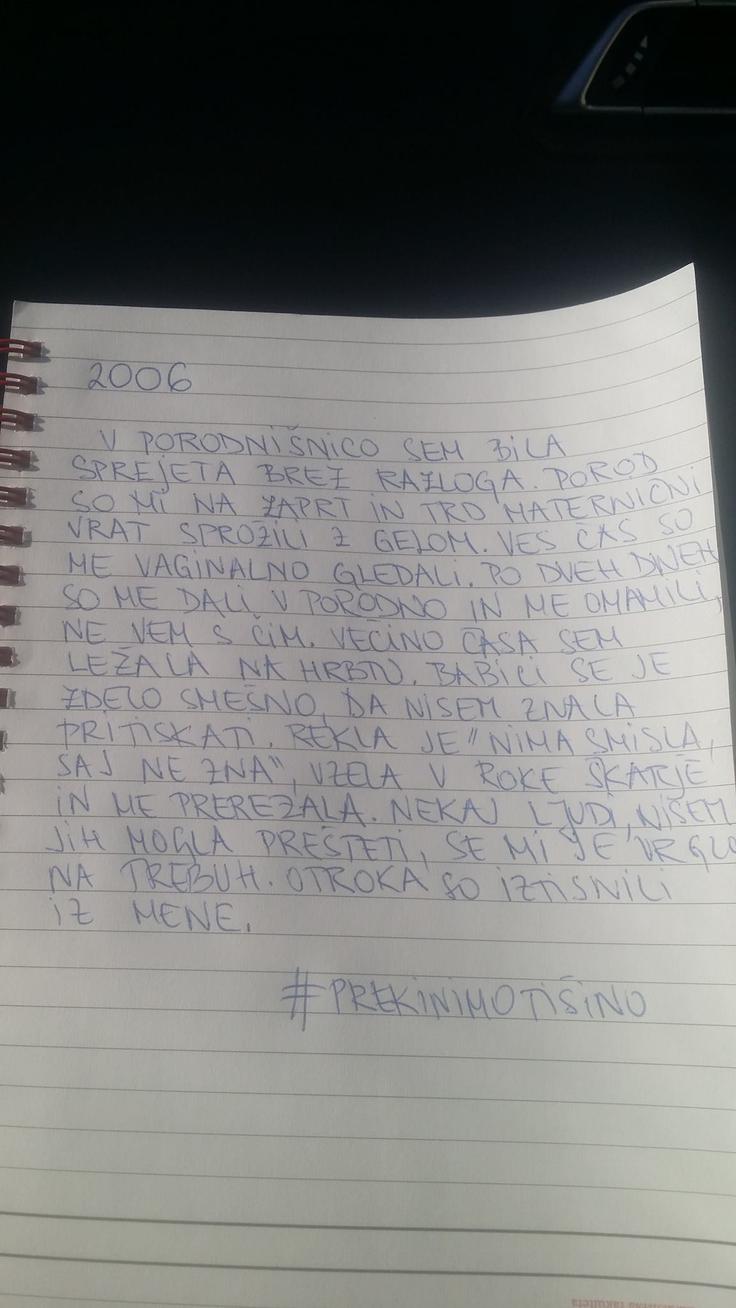 2006
V PORODNIŠNICO SEM BILA
SPREJETA BREZ RAZLOGA. POROD
SO MI NA ZAPRT IN TRD MATERNIČNI
VRAT SPROŽILI Z GELOM. VES ČAS SO
ME VAGINALNO GLEDALI. PO DVEH DNEH
SO ME DALI V PORODNO IN ME OMAMILI,
NE VEM S ČIM. VEČINO ČASA SEM
LEŽALA NA HRBTU. BABICI SE JE
ZDELO SMEŠNO, DA NISEM ZNALA
PRITISKATI. REKLA JE "NIMA SMISLA,
SAJ NE ZNA", VZELA V ROKE ŠKARJE
IN ME PREREZALA. NEKAJ LJUDI, NISEM
JIH MOGLA PREŠTETI, SE MI JE VRGLO
NA TREBUH. OTROKA SO IZTISNILI
IZ MENE.
#PREKINIMOTIŠINO